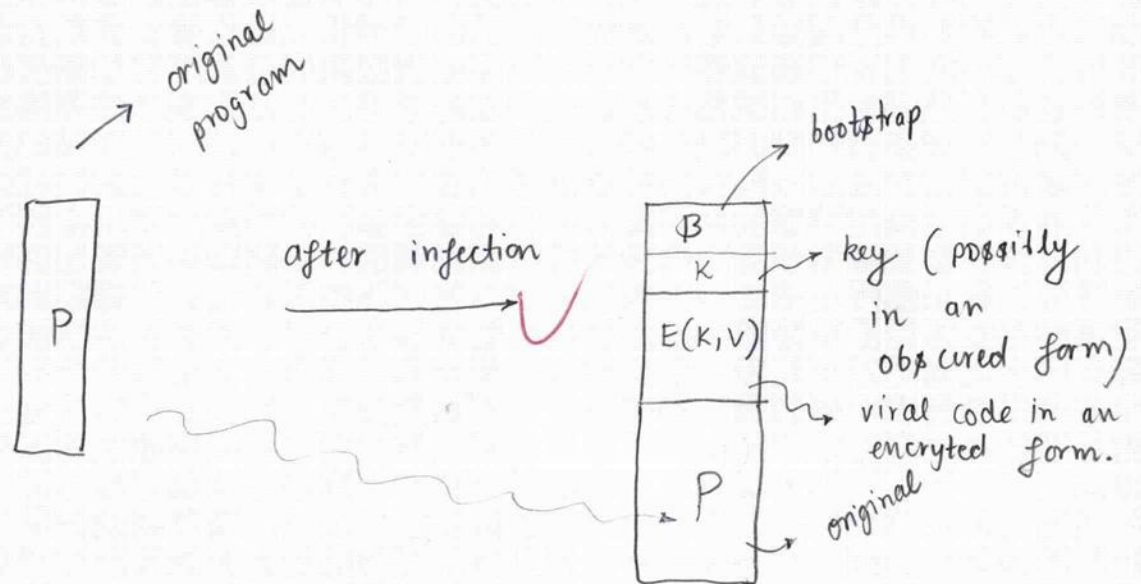 original
program
P
after infection
bootstrap
B
K
E(K,V)
P
key (possibly
in an
obscured form)
viral code in an
encryted form.
original